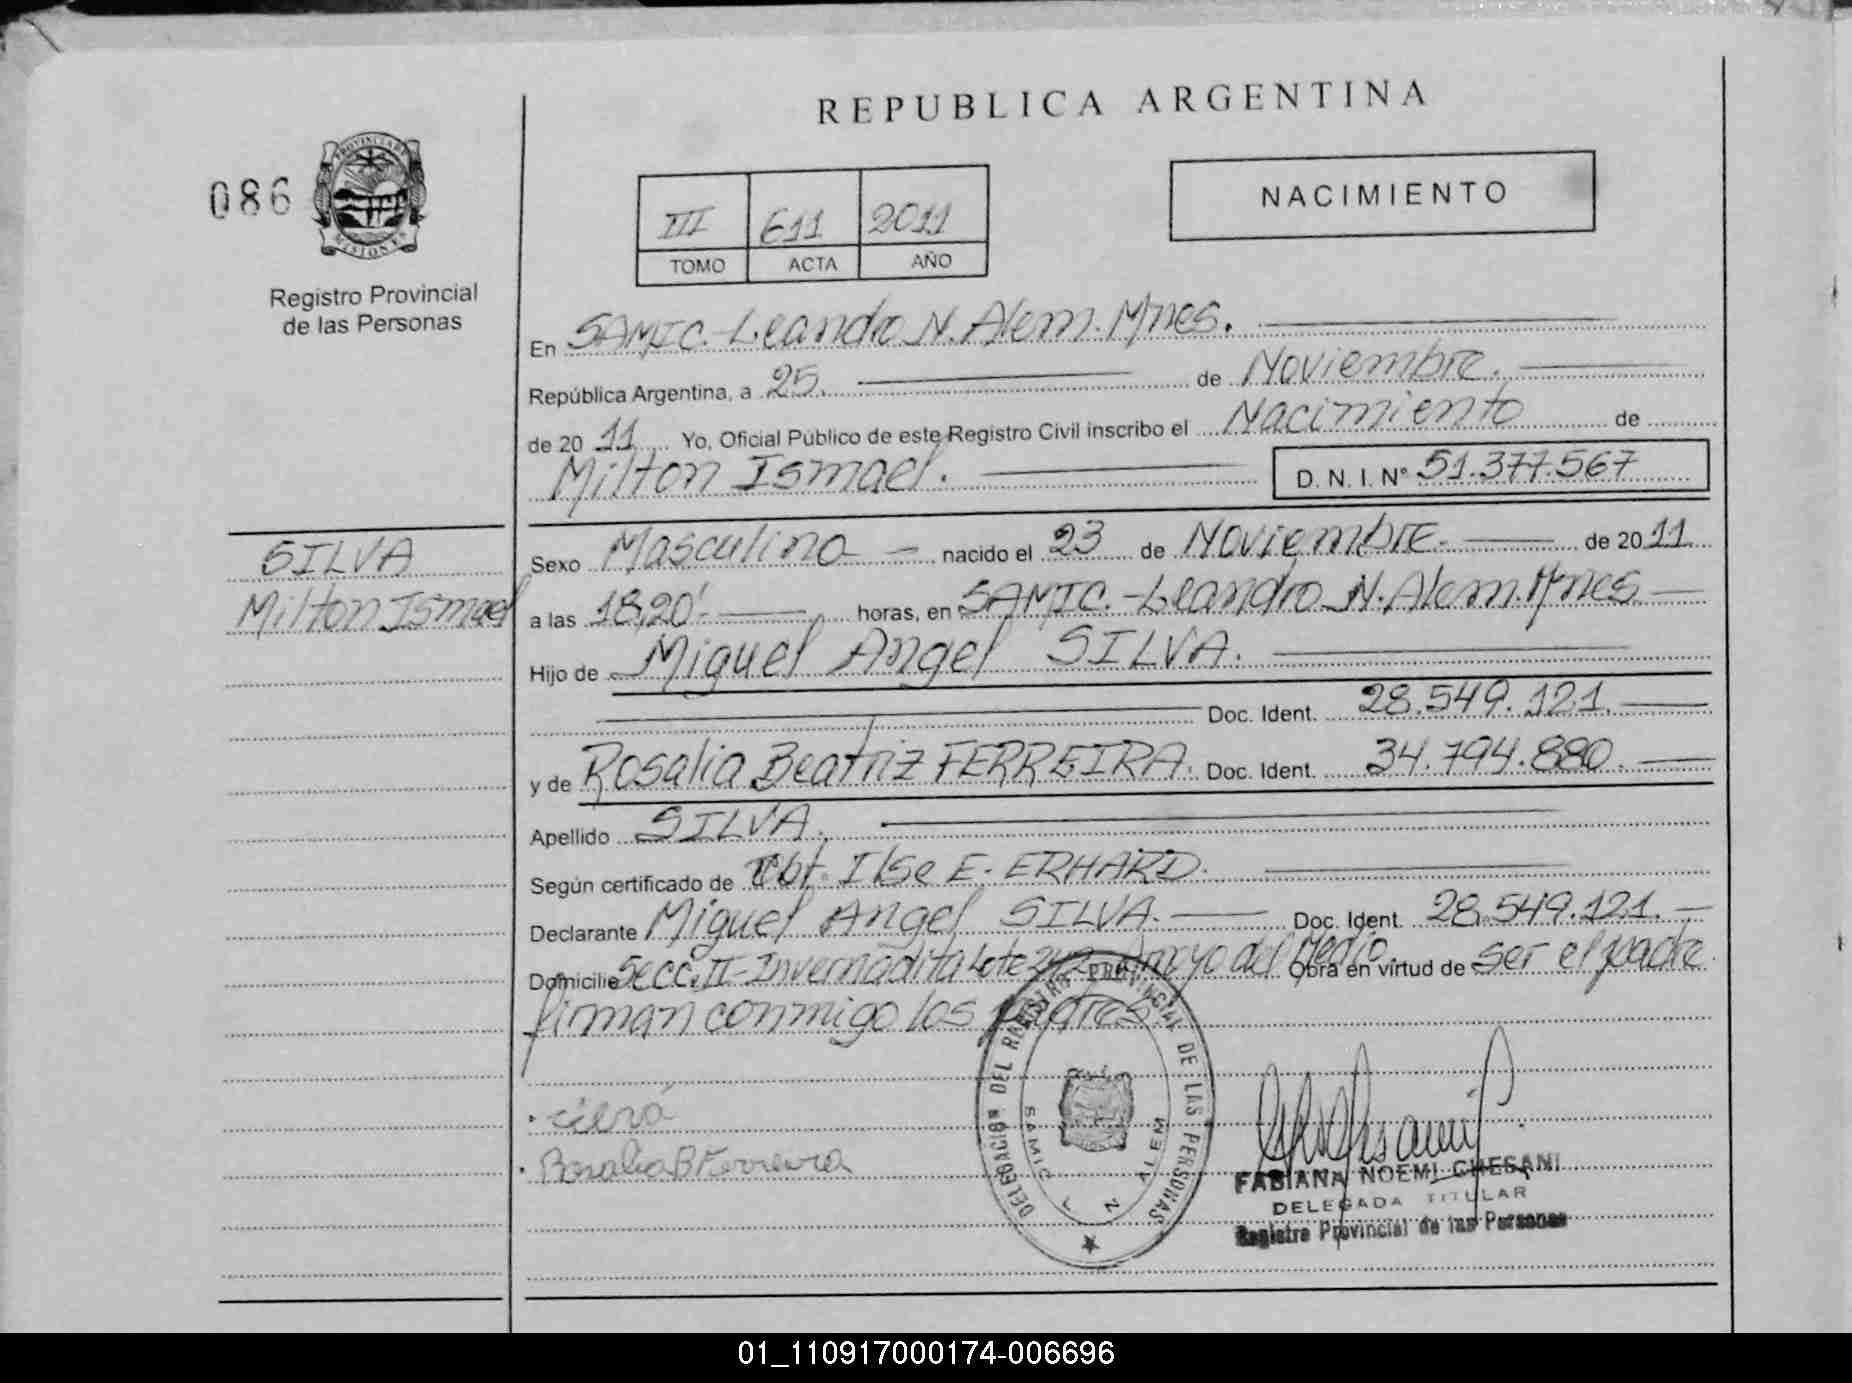 REPUBLICA ARGENTINA
086
PROVINCIA DE
MISIONES
Registro Provincial
de las Personas
III 611 2011
TOMO ACTA AÑO
NACIMIENTO
En SAMIC.-Leandro N. Alem. Mnes.
República Argentina, a 25. de Noviembre.
de 20 11 Yo, Oficial Público de este Registro Civil inscribo el Nacimiento de
Milton Ismael. D. N. I. Nº 51.377.567
SILVA
Milton Ismael
Sexo Masculino nacido el 23 de Noviembre. de 20 11
a las 18,20'. horas, en SAMIC.-Leandro N. Alem. Mnes.
Hijo de Miguel Angel SILVA.
Doc. Ident. 28.549.121.
y de Rosalia Beatriz FERREIRA. Doc. Ident. 34.794.880.
Apellido SILVA.
Según certificado de Obt. Ilse E. ERHARD.
Declarante Miguel Angel SILVA. Doc. Ident. 28.549.121.
Domicilio Secc. II-Invernadita Lote 242 Arroyo del Medio. Obra en virtud de ser el padre.
firman conmigo los padres.
Rosalia B Ferreira
DELEGACION DEL REGISTRO PROVINCIAL DE LAS PERSONAS
SAMIC L N ALEM
FABIANA NOEMI CHESANI
DELEGADA TITULAR
Registro Provincial de las Personas
01_110917000174-006696